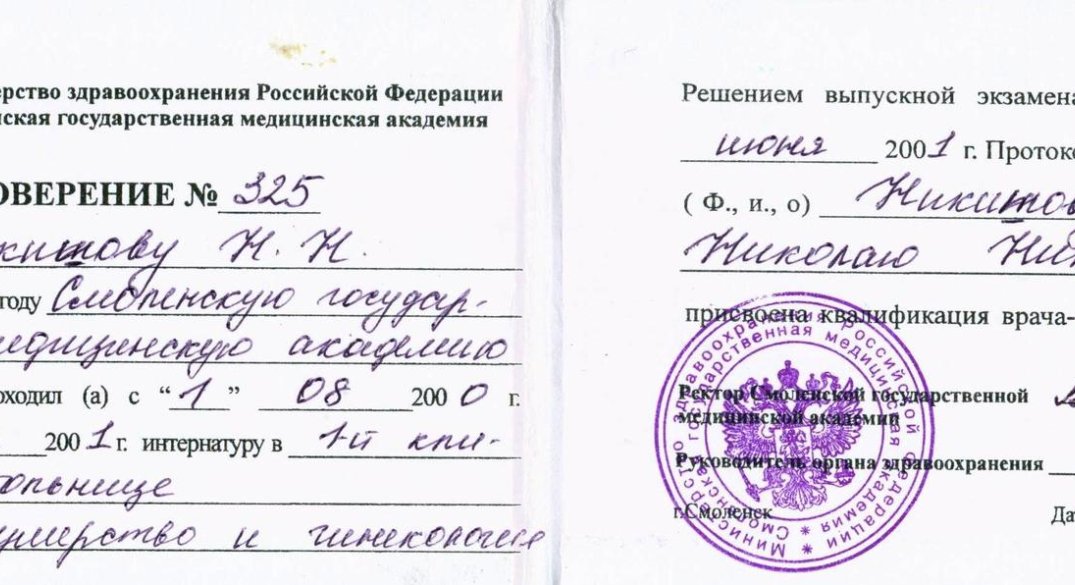 ерство здравоохранения Российской Федерации
нская государственная медицинская академия
ОВЕРЕНИЕ № 325
китову Н. Н.
году Смоленскую государ-
медицинскую академию
оходил (а) с “ 1 ” 08 200 0 г.
200 1 г. интернатуру в 1-й кли-
ольнице
ушерство и гинекология
Решением выпускной экзамена
июня 2001 г. Протоко
( Ф., и., о) Никитов
Николаю Ни
присвоена квалификация врача-
Ректор Смоленской государственной
медицинской академии
Руководитель органа здравоохранения
г.Смоленск Да
Министерство здравоохранения Российской Федерации
Смоленская государственная медицинская академия